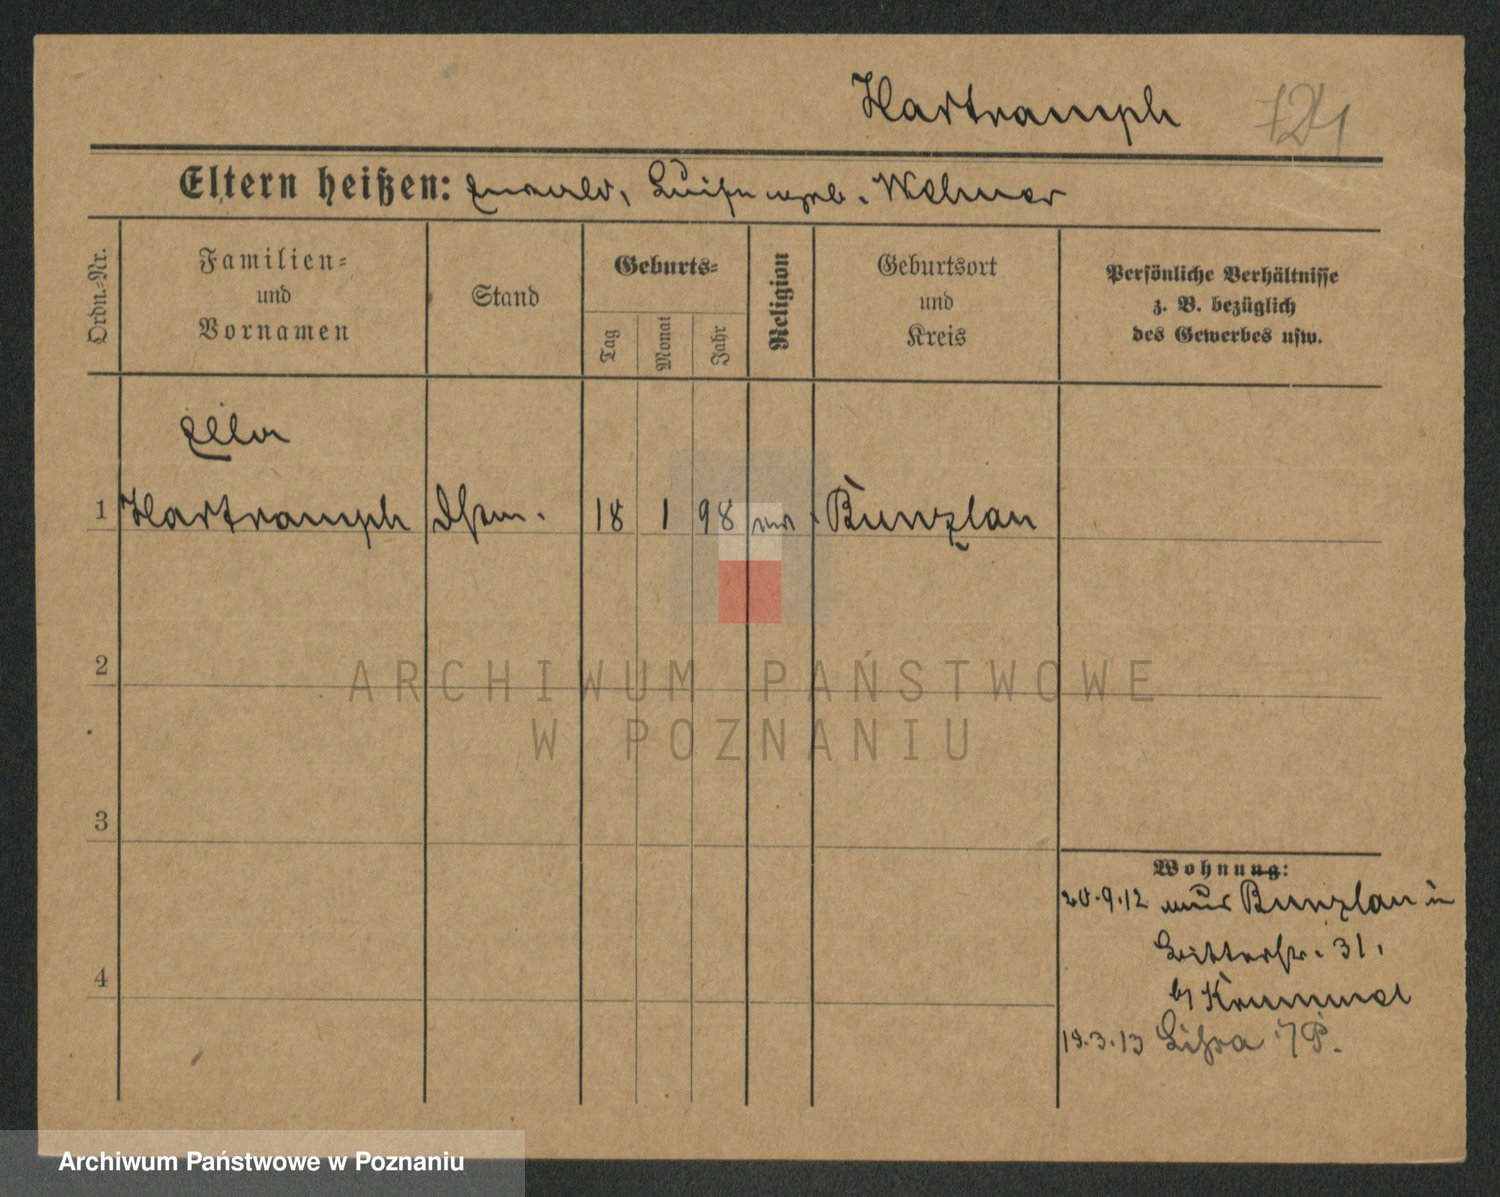 Hartramph 724
Eltern heißen: Ewald, Luise geb. Wellner
Ordn.=Nr.
Familien=
und
Vornamen
Stand
Geburts=
Tag
Monat
Jahr
Religion
Geburtsort
und
Kreis
Persönliche Verhältnisse
z. B. bezüglich
des Gewerbes usw.
Ella
1 Hartramph 18 1 98 Bunzlau
2
3
4
Wohnung:
20.9.12 Bunzlau
31.
Krummel
Lissa i/P.
ARCHIWUM PAŃSTWOWE
W POZNANIU
Archiwum Państwowe w Poznaniu